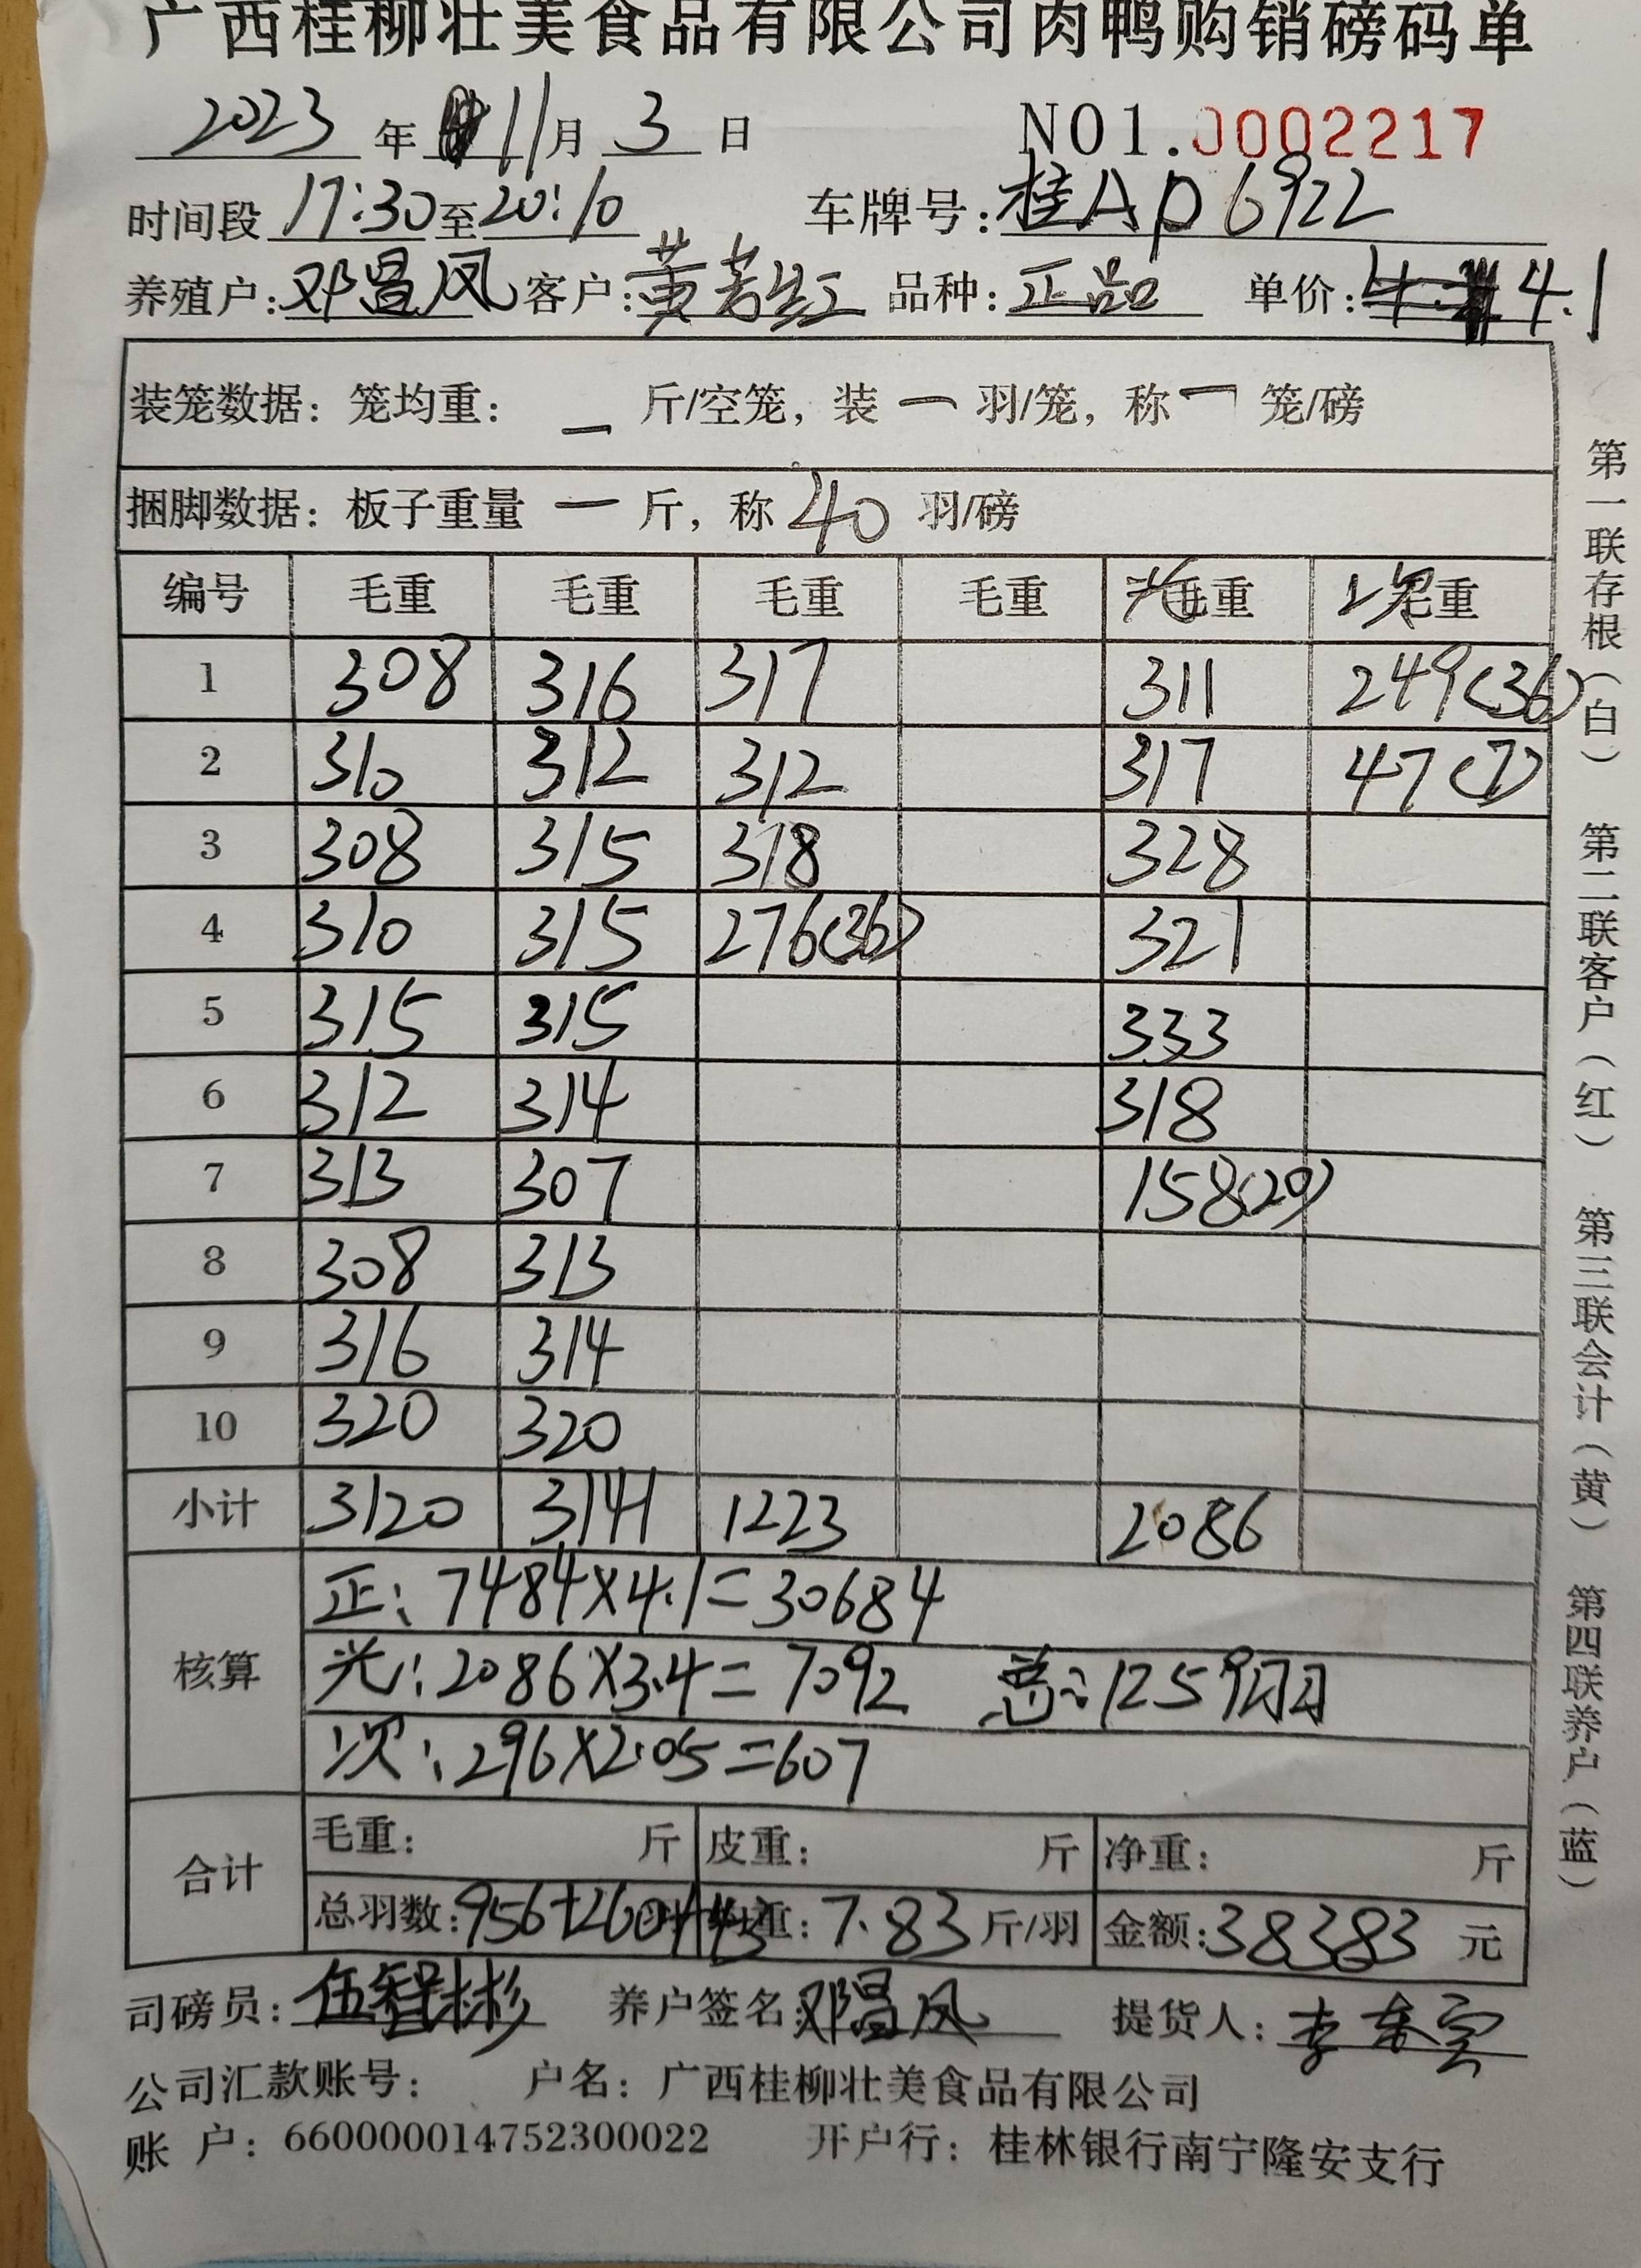 广西桂柳壮美食品有限公司肉鸭购销磅码单
2023 年 11 月 3 日 NO1.0002217
时间段 17:30 至 20:10 车牌号:桂AD6922
养殖户:邓昌凤 客户:黄芳红 品种:正品 单价:4.1
装笼数据:笼均重: — 斤/空笼,装 — 羽/笼,称 — 笼/磅
捆脚数据:板子重量 — 斤,称 40 羽/磅
编号 毛重 毛重 毛重 毛重 光毛重 次毛重
1 308 316 317 311 249(36)
2 310 312 312 317 47(7)
3 308 315 318 328
4 310 315 276(36) 321
5 315 315 333
6 312 314 318
7 313 307 158(20)
8 308 313
9 316 314
10 320 320
小计 3120 3141 1223 2086
核算
正:7484×4.1=30684
光:2086×3.4=7092 总:1259羽
次:296×2.05=607
合计
毛重: 斤 皮重: 斤 净重: 斤
总羽数:956+260+43 均重:7.83 斤/羽 金额:38383 元
司磅员:伍智彬 养户签名:邓昌凤 提货人:李
公司汇款账号: 户名:广西桂柳壮美食品有限公司
账 户:660000014752300022 开户行:桂林银行南宁隆安支行
第一联存根(白) 第二联客户(红) 第三联会计(黄) 第四联养户(蓝)